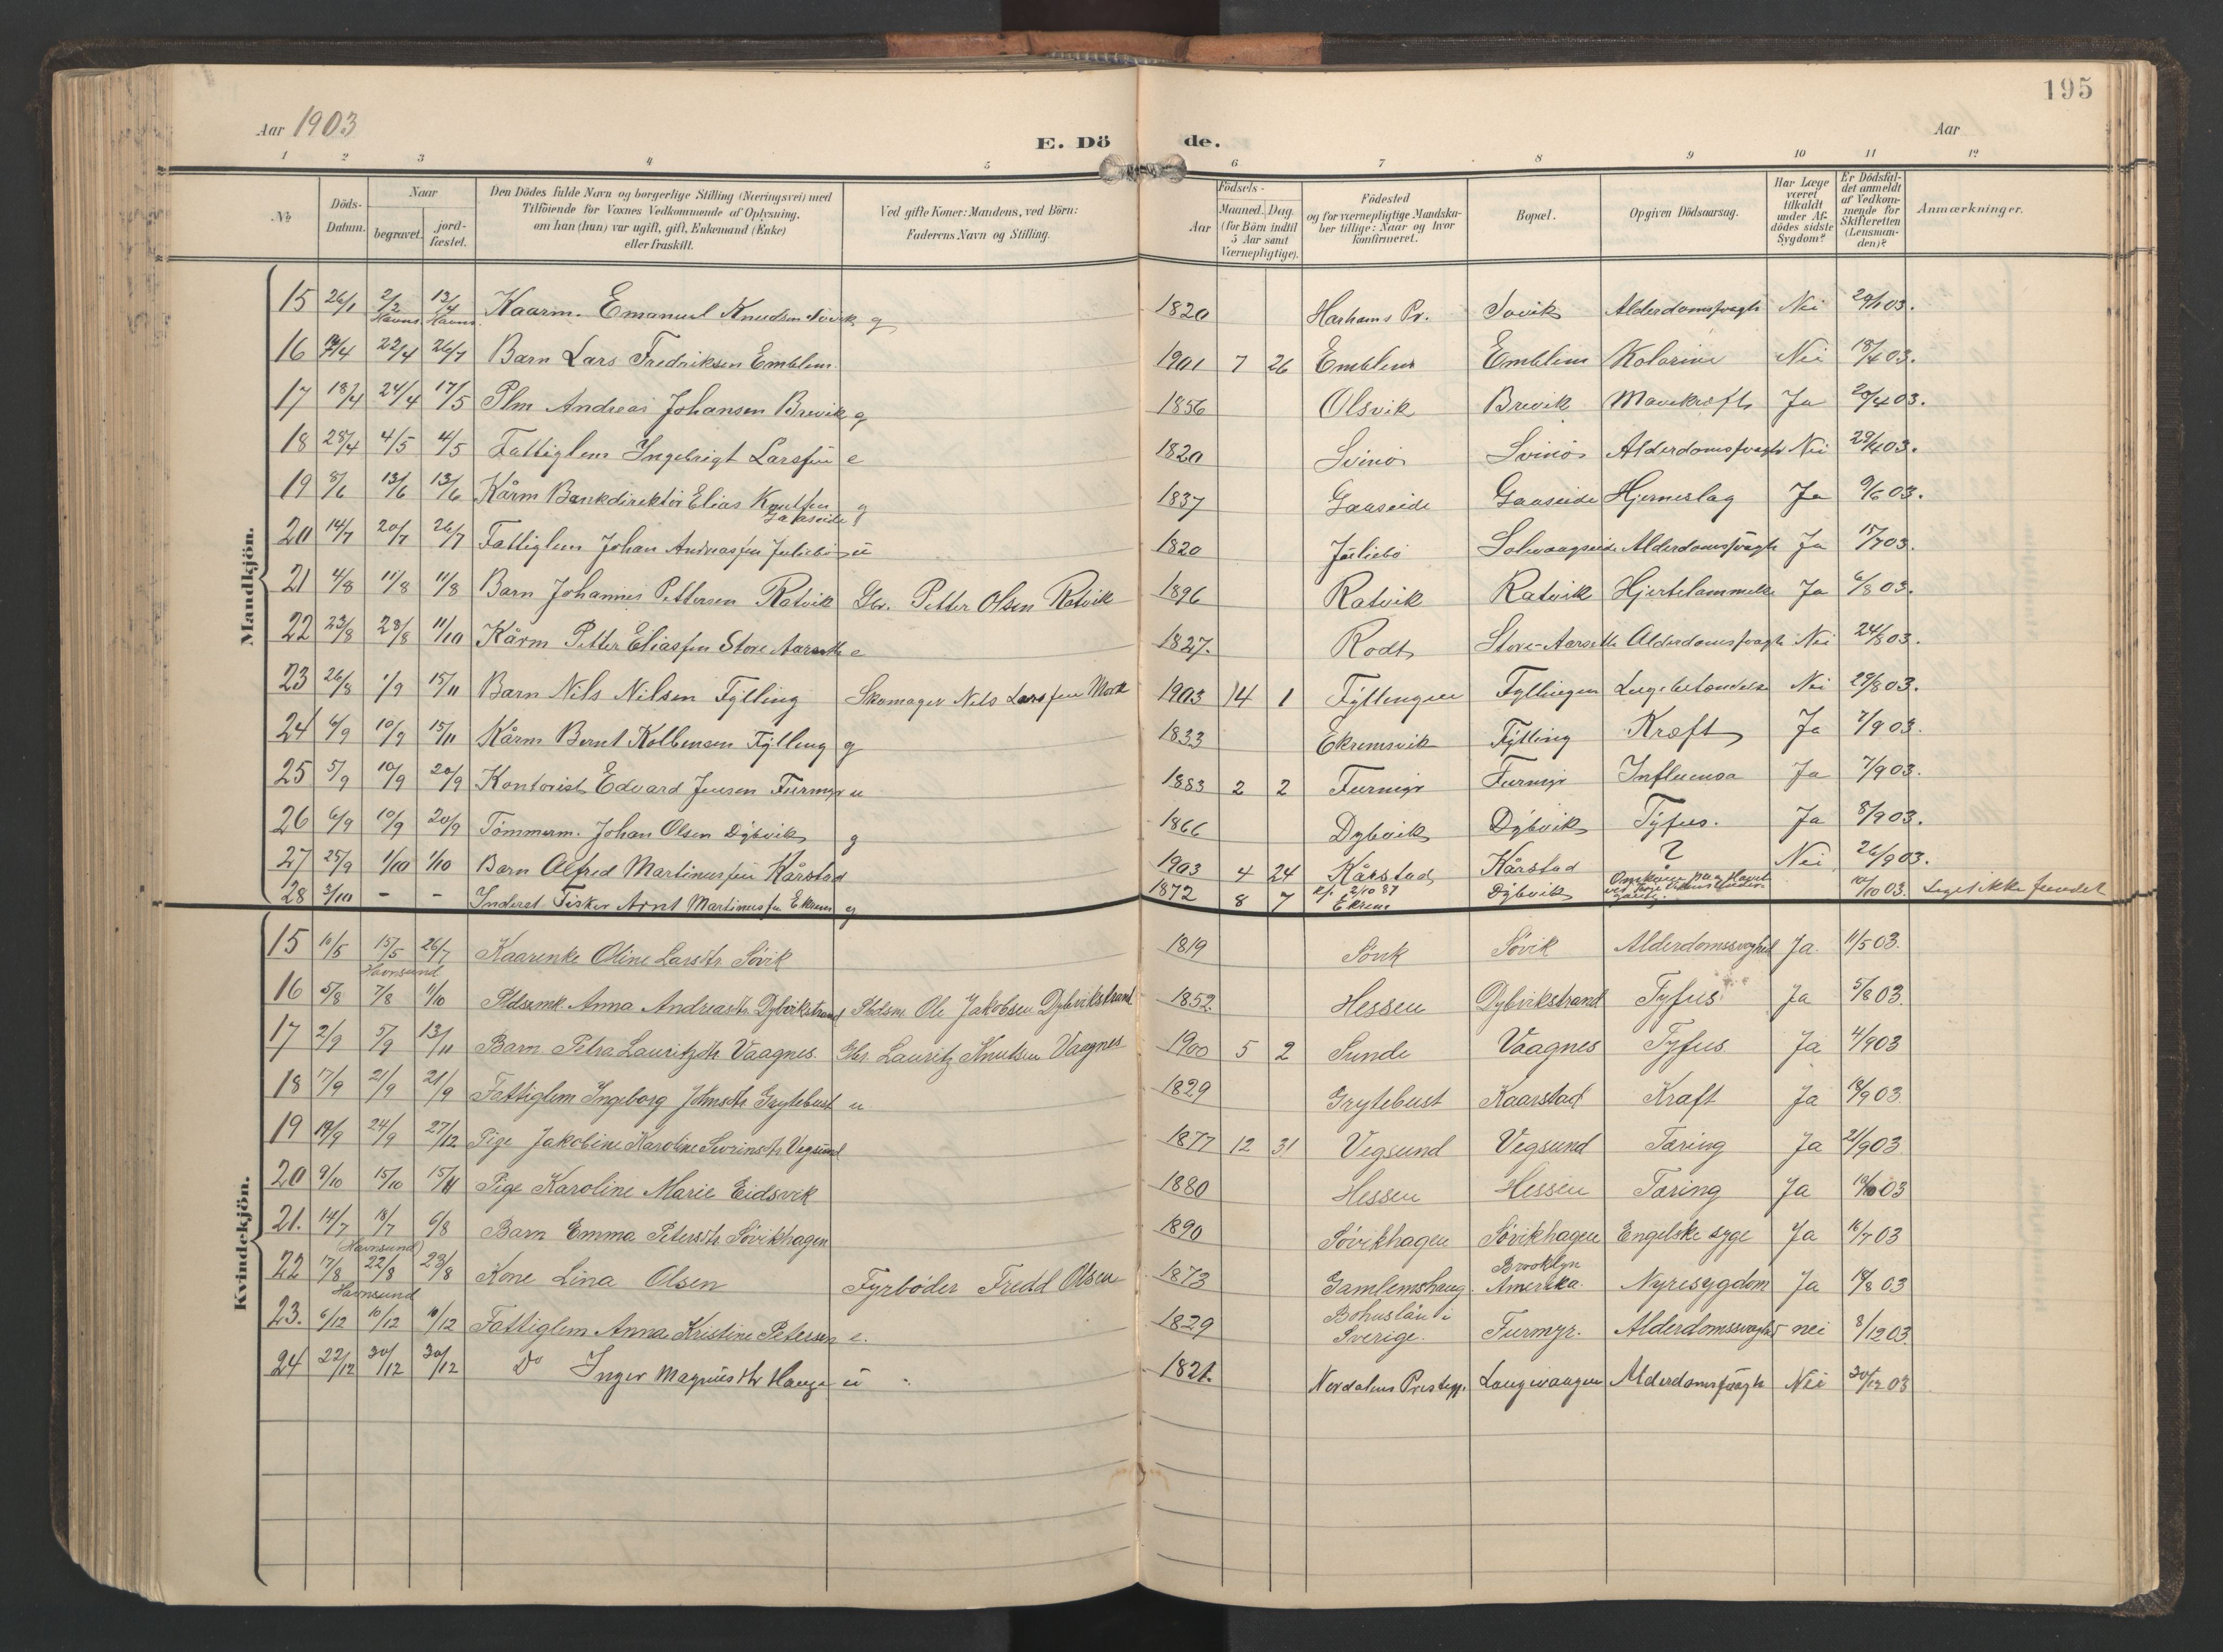 195
Aar 1903
E. Dö de.
Aar
1 2 3 4 5 6 7 8 9 10 11 12
No
Döds-Datum.
Naar begravet. jordfæstet.
Den Dödes fulde Navn og borgerlige Stilling (Næringsvei) med
Tilföiende for Voxnes Vedkommende af Oplysning,
om han (hun) var ugift, gift, Enkemand (Enke)
eller fraskilt.
Ved gifte Koner: Mandens, ved Börn:
Faderens Navn og Stilling.
Födsels-
Aar Maaned. Dag.
(for Börn indtil
5 Aar samt
Værnepligtige).
Födested
og for værnepligtige Mandska-
ber tillige: Naar og hvor
konfirmeret.
Bopæl.
Opgiven Dödsaarsag.
Har Læge
været
tilkaldt
under Af-
dödes sidste
Sygdom?
Er Dödsfal-
det anmeldt
af Vedkom-
mende for
Skifteretten
(Lensman-
den)?
Anmærkninger.
Mandkjön.
15 26/1 2/2 13/4 Kaarm. Emanuel Knudsen Søvik g 1820 Harhams Pr. Søvik Alderdomssvagh Nei 29/1 03.
Havns. Havns.
16 /4 22/4 26/7 Barn Lars Fredriksen Emblem 1901 7 26 Emblem Emblem Kolerine Nei 18/4 03.
17 18/4 24/4 17/5 Plm Andreas Johansen Brevik g 1856 Olsvik Brevik Mavekræft Ja 20/4 03.
18 28/4 4/5 4/5 Fattiglem Ingebrigt Larssen e 1820 Svinö Svinö Alderdomssvagh Nei 29/4 03.
19 8/6 13/6 13/6 Kårm Bankdirektör Elias Knutsen g 1837 Gaaseide Gaaseide Hjerneslag Ja 9/6 03.
Gaaseide
20 14/7 20/7 26/7 Fattiglem Johan Andreassen Juliebö u 1820 Juliebö Solvaagseide Alderdomssvagh Ja 15/7 03.
21 4/8 11/8 11/8 Barn Johannes Pettersen Ratvik Gbr. Petter Olsen Ratvik 1896 Ratvik Ratvik Hjertelammelse Ja 6/8 03.
22 23/8 28/8 11/10 Kårm Petter Eliassen Store Aarseth e 1827. Rodt Store-Aarseth Alderdomssvagh Nei 24/8 03.
23 26/8 1/9 15/11 Barn Nils Nilsen Fylling Skomager Nils Larssen Mork 1903 4 1 Fyllingen Fyllingen Lugebetændelse Nei 29/8 03.
24 6/9 10/9 15/11 Kårm Bernt Kolbensen Fylling g 1833 Ekremsvik Fylling Kræft Ja 7/9 03.
25 5/9 10/9 20/9 Kontorist Edvard Jensen Furmyr u 1883 2 2 Furmyr Furmyr Influensa Ja 7/9 03.
26 6/9 10/9 20/9 Tömmerm. Johan Olsen Dybvik g 1866 Dybvik Dybvik Tyfus. Ja 8/9 03.
27 25/9 1/10 1/10 Barn Alfred Martinussen Kårstad 1903 4 24 Kårstad Kårstad ? Nei 26/9 03.
28 3/10 - - Inderst Fisker Arnt Martinussen Ekrem g 1872 8 7 2/10 87 Ekrem Dybvik Omkommen paa Havet 10/10 03. Liget ikke fundet
Kvindekjön.
15 10/5 15/5 26/7 Kaarenke Oline Larsdtr. Søvik 1819 Søvik Søvik Alderdomssvaghed Ja 11/5 03.
Havnsund
16 5/8 7/8 11/10 Pldsemk. Anna Andreasdtr. Dybvikstrand Pladsm. Ole Jakobsen Dybvikstrand 1852. Hessen Dybvikstrand Tyfus Ja 5/8 03.
17 2/9 5/9 13/11 Barn Petra Lauritzdtr. Vaagnes. Gbr. Lauritz Knutsen Vaagnes 1900 5 2 Sunde Vaagnes Tyfus Ja 4/9 03
18 17/9 21/9 21/9 Fattiglem Ingeborg Johnsdtr. Grytebust u 1829 Grytebust Kaarstad Kraft Ja 18/9 03
19 19/9 24/9 27/12 Pige Jakobine Karoline Severinsdtr. Vegsund 1877 12 31 Vegsund Vegsund Tæring Ja 21/9 03
20 9/10 15/10 15/11 Pige Karoline Marie Eidsvik 1880 Hessen Hessen Tæring Ja 10/10 03
21. 14/7 18/7 6/8 Barn Emma Petersdtr. Søvikhagen 1890 Søvikhagen Søvikhagen Engelske syge Ja 16/7 03
(Havnsund)
22 17/8 22/8 23/8 Kone Lina Olsen Fyrbøder Fredd Olsen 1873 Gamlemshaug. Brooklyn Amerika. Nyresygdom Ja 18/8 03
Havnsund
23. 6/12 10/12 10/12 Fattiglem Anna Kristine Petersen e. 1829 Bohuslän i Sverige. Furmyr. Alderdomssvaghed nei 8/12 03
24 22/12 30/12 30/12 Do Inger Magnusdtr Hauge u 1821. Nordalens Prestegj. Langevaagen Alderdomssvagh Nei 30/12 03